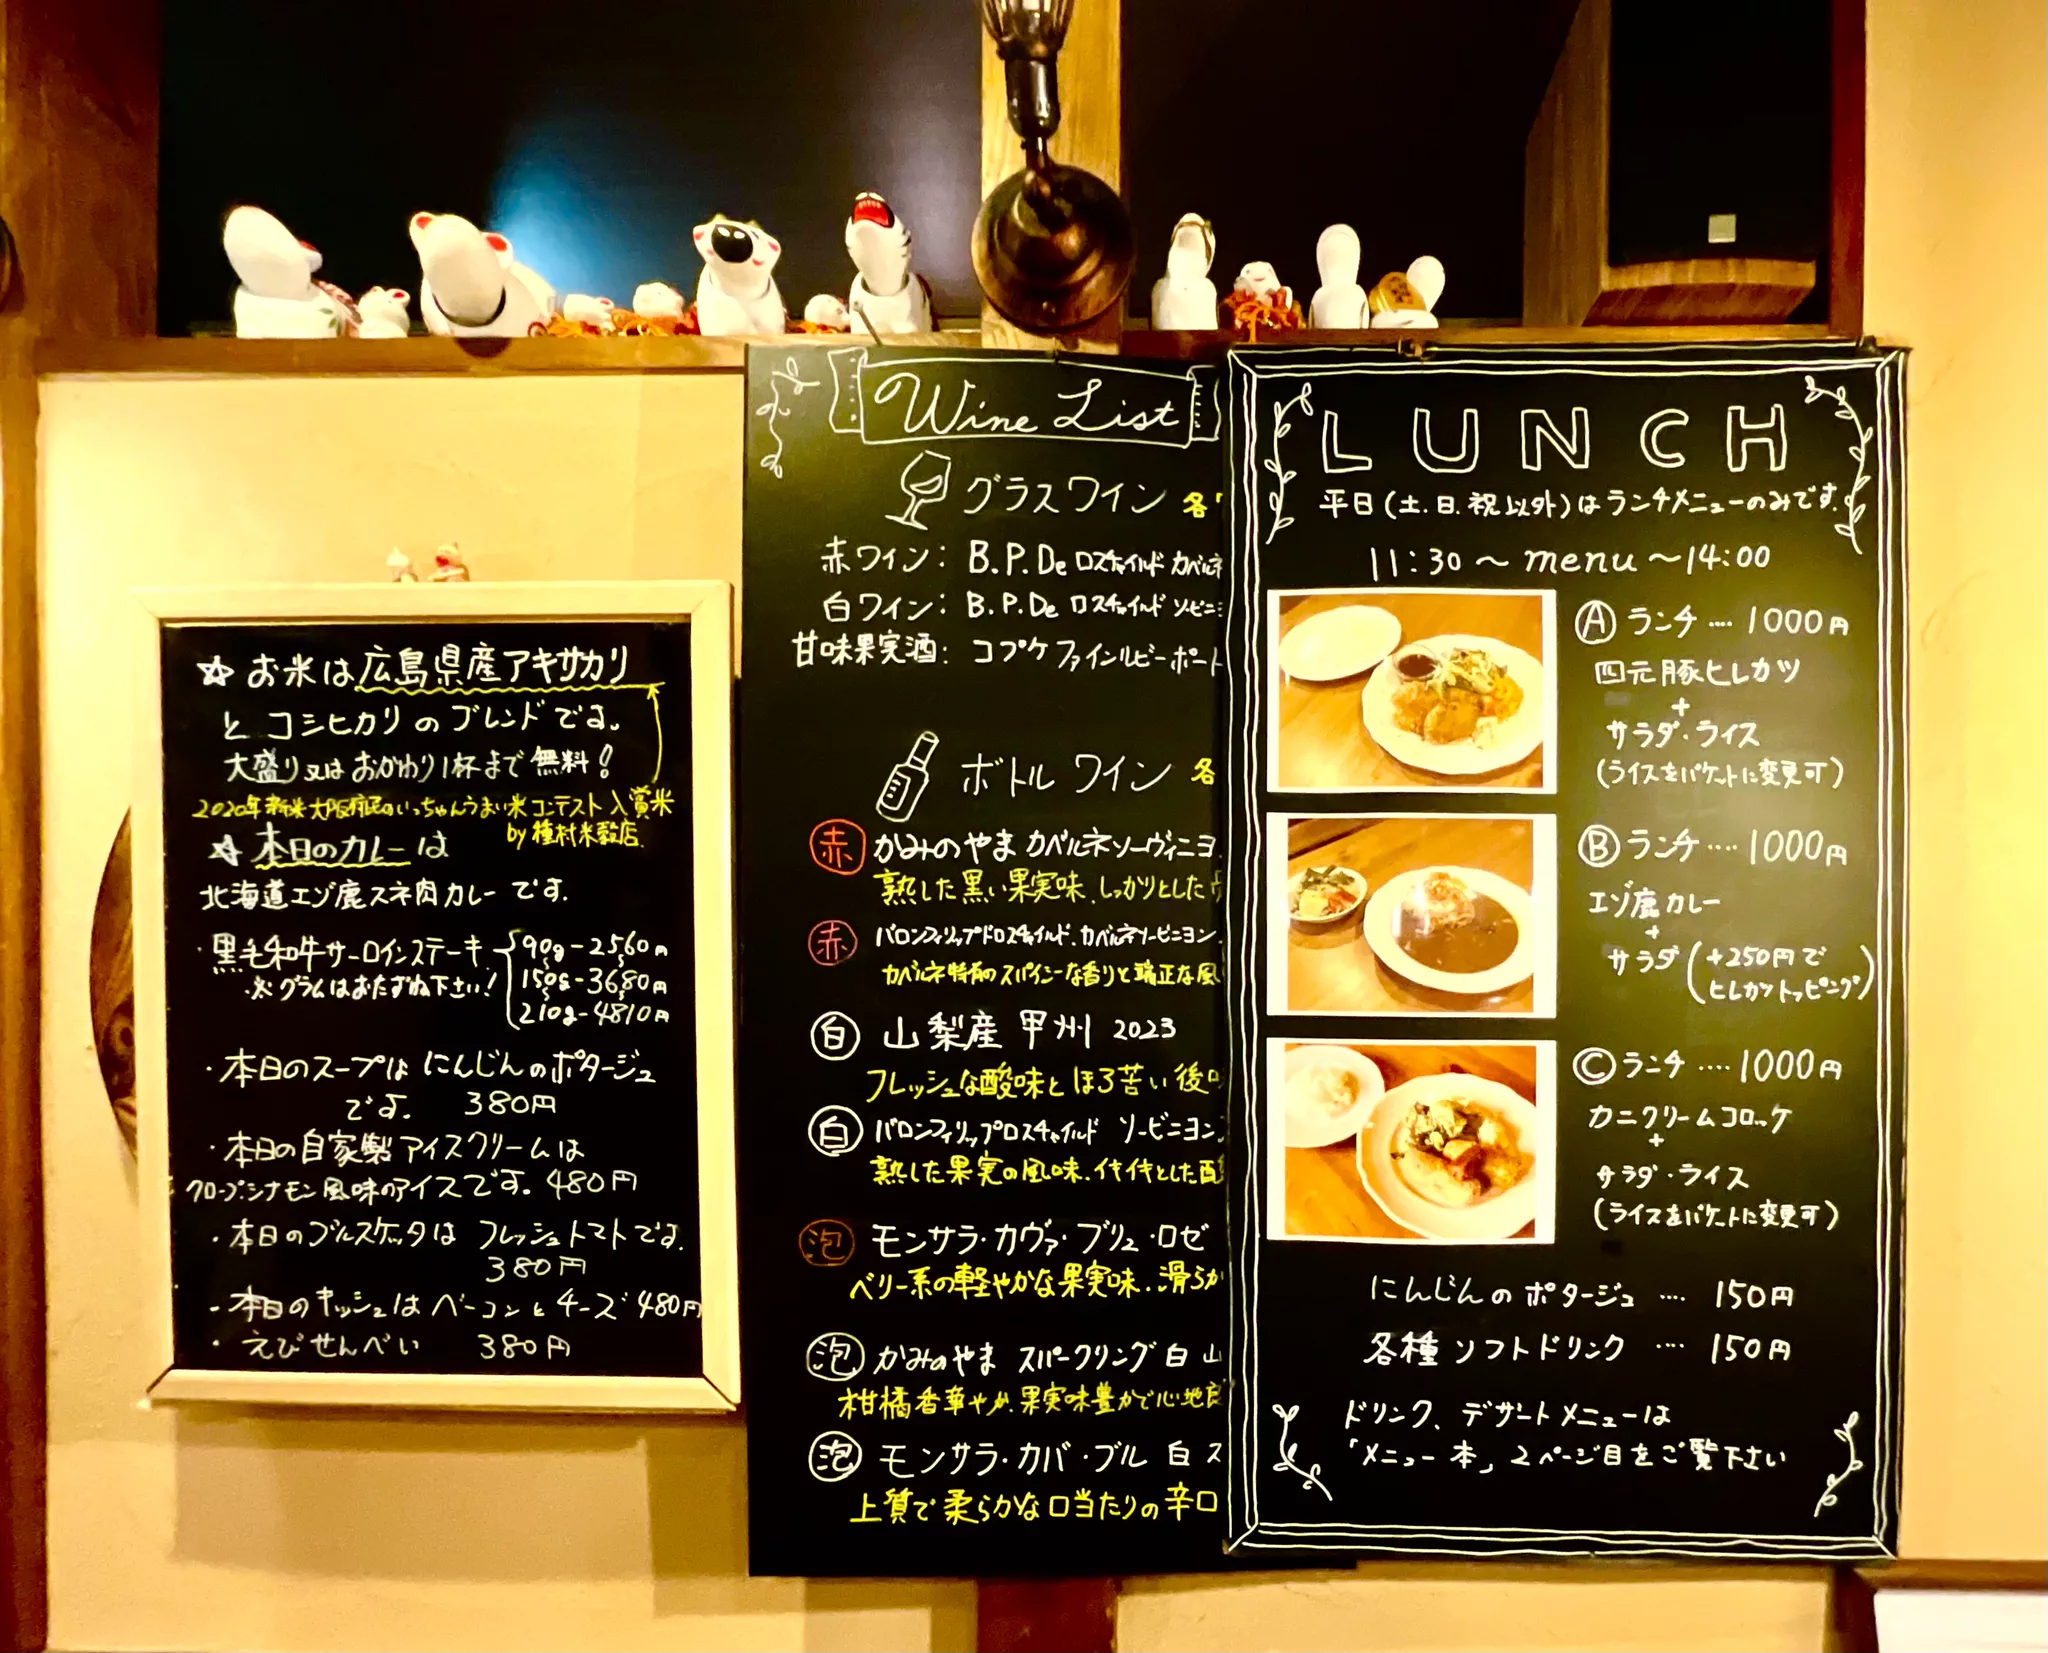 ☆お米は広島県産アキサカリ
とコシヒカリのブレンドです。
大盛り又はおかわり1杯まで無料!
2020年新米大阪府民のいっちゃんうまい米コンテスト入賞米
by 種村米穀店.
☆本日のカレーは
北海道エゾ鹿スネ肉カレーです.
・黒毛和牛サーロインステーキ
90g-2560円
※グラムはおたずね下さい!
150g-3680円
210g-4810円
・本日のスープはにんじんのポタージュ
です. 380円
・本日の自家製アイスクリームは
クローブ.シナモン風味のアイスです. 480円
・本日のブルスケッタは フレッシュトマトです.
380円
・本日のキッシュはベーコンとチーズ 480円
・えびせんべい 380円
Wine List
グラスワイン 各
赤ワイン: B.P.De ロスチャイルド カベルネ
白ワイン: B.P.De ロスチャイルド ソービニ
甘味果実酒: コプケ ファインルビーポート
ボトル ワイン 各
赤 かみのやま カベルネソーヴィニヨ
熟した黒い果実味.しっかりとした
赤 バロンフィリップドロスチャイルド.カベルネソービニヨン
カベルネ特有のスパイシーな香りと端正な風
白 山梨産 甲州 2023
フレッシュな酸味とほろ苦い後
白 バロンフィリップロスチャイルド ソービニヨン
熟した果実の風味.イキイキとした
泡 モンサラ・カヴァ・ブリュ・ロゼ
ベリー系の軽やかな果実味.滑らか
泡 かみのやま スパークリング 白 山
柑橘香華やか.果実味豊かで心地良
泡 モンサラ・カバ・ブル 白 ス
上質で柔らかな口当たりの辛口
LUNCH
平日(土.日.祝以外)はランチメニューのみです.
11:30〜menu〜14:00
Ⓐランチ....1000円
四元豚ヒレカツ
+
サラダ・ライス
(ライスをバケットに変更可)
Ⓑランチ....1000円
エゾ鹿カレー
+
サラダ(+250円でヒレカツトッピング)
Ⓒランチ....1000円
カニクリームコロッケ
+
サラダ・ライス
(ライスをバケットに変更可)
にんじんのポタージュ .... 150円
各種ソフトドリンク .... 150円
ドリンク、デザートメニューは
「メニュー本」2ページ目をご覧下さい